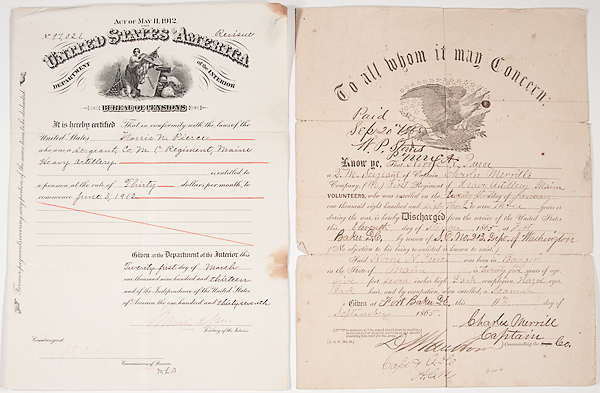 Act of May 11, 1912.
No 97,021
Reissue
United States of America
Department of the Interior
Bureau of Pensions
It is hereby certified That in conformity with the laws of the
United States Norris N. Pierce
who was a Sergeant, Co. M, 1st Regiment, Maine
Heavy Artillery
is entitled to
a pension at the rate of Thirty dollars per month, to
commence June 3, 1912
Given at the Department of the Interior this
Twenty first day of March
one thousand nine hundred and thirteen
and of the Independence of the United States
of America the one hundred and thirty seventh
Secretary of the Interior.
Countersigned
Commissioner of Pensions.
To all whom it may Concern:
Paid
Sep 20 1865
Know ye, That
a Sergeant of Captain Charles Merrill's
Company, (M,) First Regiment of Heavy Artillery Maine
VOLUNTEERS, who was enrolled on the day of January
one thousand eight hundred and sixty to serve years or
during the war, is hereby Discharged from the service of the United States
this Eleventh day of September, 1865, at Fort
Baker D.C. by reason of Dept. of Washington
(No objection to his being re-enlisted is known to exist.)
Said Norris N. Pierce was born in Bangor
in the State of Maine, is Twenty five years of age,
five feet seven inches high, Dark complexion, Hazel eyes,
Dark hair, and by occupation, when enrolled, a Seaman
Given at Fort Baker D.C. this 11th day of
September 1865.
Charles Merrill
Captain
Commanding the Co.